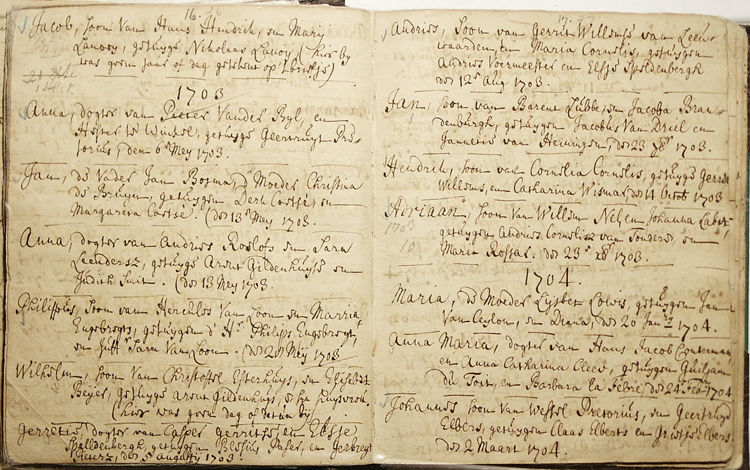 16.
Jacob, soon van Hans Hendrik, en Maria
Lanoy, getuyge Nicholaas Lanoy (hier by
was geen jaar of dag getekent op 't briefje)
1703
Anna, dogter van Pieter Vander Byl, en
Hester te Winkel, getuyge Geertruyt
den 6 Mey 1703.
Jan, de Vader Jan Bosma, d' Moeder Christina
de Bruyn, getuygen Derk Coetsé en
Margareta Coetsé. (den 13 Mey 1703.
Anna, dogter van Andries Roelofs en Sara
Leendersz, getuyge Arent Gildenhuyse en
Judith (den 13 Mey 1703.
Philippus, soon van Hercules Van Loon en Marria
Engebregts, getuygen d' Hr Philips Engebregt,
en Juff Sara Van Loon. (den 20 Mey 1703
Wilhelm, soon Van Christoffel Esterhuys, en Elisabet
Beyer, getuyge Arent Gildenhuys, & syn huysvrou.
(hier was geen dag of datum by)
dogter van Casper gerritse en Elsje
Spalldenbergh, getuygen en
den 5 augusty 1703
17.
Andries, soon van Gerrit Willemse van Leeu-
waarden, en Maria Cornelis, getuygen
Andries Voermeester en Elsje Speldenbergh
den 12 Aug 1703.
Jan, soon van Barent Lubbe, en Jacoba Bran-
denburgh, getuygen Jacobus Van Driel en
Jannetie van Heiningen, den 23 7br 1703.
Hendrik, soon van Cornelia Cornelis, getuyge Gerrit
Willems, en Catharina Wismar, den 14 Octob 1703
Adriaan, soon Van Willem Nel en Johanna
getuygen Andries Cornelisz van en
Maria Rossar. den 23 1703.
1704.
Maria, de Moeder Lysbet Louis, getuygen Jan
Van Ceylon, en Diana, den 20 Jan 1704.
Anna Maria, dogter van Hans Jacob Conterman
en Anna Catharina Cleef, getuygen Guiljam
du Toit, en Barbara la Febre, den 24 Feb 1704
Johannes soon Van Wessel Pretorius, en Geertruyd
Elbers, getuygen Claas Elberts en Elbers.
den 2 Maart 1704.